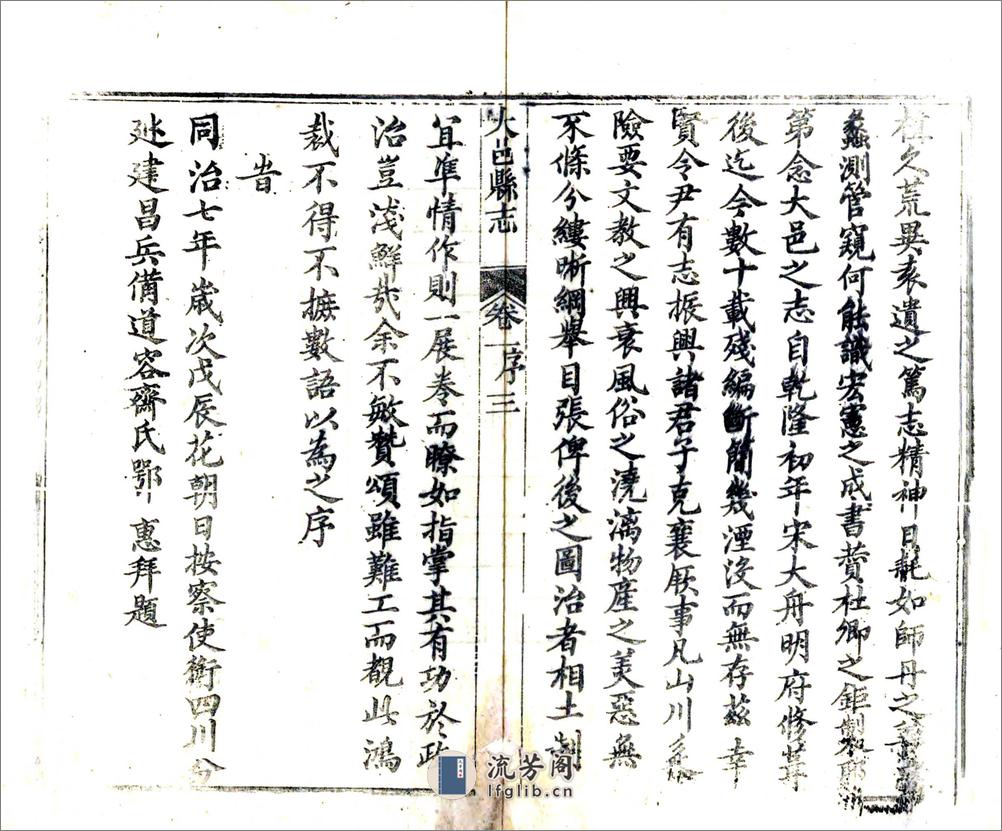 久荒異表遺之篤志精神日耗如師丹之
蠡測管窺何能識宏憲之成書贊杜卿之鉅製
第念大邑之志自乾隆初年宋大舟明府修葺
後迄今數十載殘編斷簡幾湮沒而無存茲幸
賢令尹有志振興諸君子克襄厥事凡山川
險要文教之興衰風俗之澆漓物產之美惡無
不條分縷晰綱舉目張俾後之圖治者相土制
大邑縣志 卷一序 三
宜準情作則一展卷而瞭如指掌其有功於政
治豈淺鮮哉余不敏贊頌雖難工而觀此鴻
裁不得不摭數語以為之序
旹
同治七年歲次戊辰花朝日按察使銜四川分
廵建昌兵備道容齋氏鄂惠拜題
流芳阁
lfglib.cn